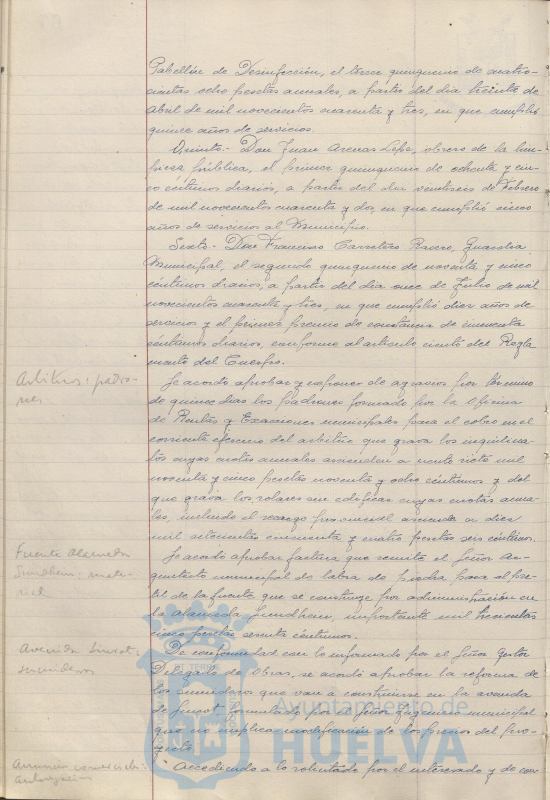 Pabellón de Desinfección, el tercer quinquenio de cuatro-
cientas ocho pesetas anuales, a partir del día treinta de
abril de mil novecientos cuarenta y tres, en que cumplió
quince años de servicios.
Quinto.- Don Juan Arenas Lepe, obrero de la lim-
pieza pública, el primer quinquenio de ochenta y cin-
co céntimos diarios, a partir del día veintiseis de Febrero
de mil novecientos cuarenta y dos, en que cumplió cinco
años de servicios al Municipio.
Sexto.- Don Francisco Carretero Racero, Guardia
Municipal, el segundo quinquenio de noventa y cinco
céntimos diarios, a partir del día once de Julio de mil
novecientos cuarenta y tres, en que cumplió diez años de
servicios y el primer premio de constancia de cincuenta
céntimos diarios, conforme al artículo ciento del Regla
mento del Cuerpo.
Arbitrios: padro-
nes
Se acordó aprobar y exponer de agravios por término
de quince días los padrones formados por la Oficina
de Rentas y Exacciones municipales para el cobro en el
corriente ejercicio del arbitrio que grava los inquilina-
tos cuyas cuotas anuales ascienden a veinte siete mil
noventa y cinco pesetas noventa y ocho céntimos y del
que grava los solares sin edificar cuyas cuotas anua-
les, incluido el recargo provincial asciende a diez
mil setecientas cincuenta y cuatro pesetas seis céntimos.
Fuente Alameda
Sundheim: mate-
rial
Se acordó aprobar factura que remite el Señor Ar-
quitecto municipal de labra de piedra para el pre-
til de la fuente que se construye por administración en
la Alameda Sundheim, importante mil trescientas
cinco pesetas sesenta céntimos.
Avenida Siurot:
sumideros
De conformidad con lo informado por el Señor Gestor
Delegado de Obras, se acordó aprobar la reforma de
los sumideros que van a construirse en la avenida
de Siurot, formulado por el Señor Ingeniero municipal
que no implica modificación de los precios del pro-
yecto.
Anuncios comerciales:
autorización
Accediendo a lo solicitado por el interesado y de con-
Ayuntamiento de
HUELVA